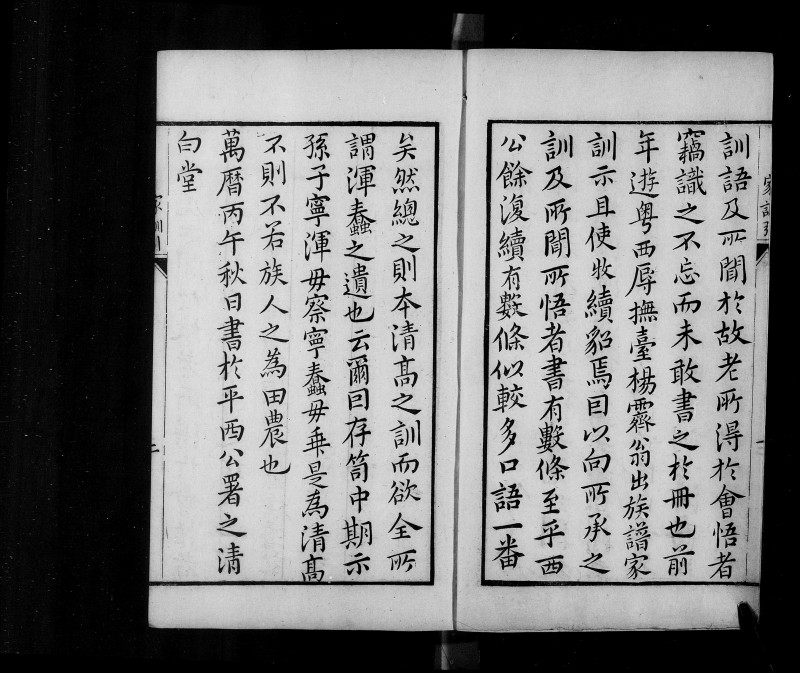 訓語及所聞於故老所得於會悟者
竊識之不忘而未敢書之於冊也前
年遊粵西辱撫臺楊霽翁出族譜家
訓示且使牧續貂焉因以向所承之
訓及所聞所悟者書有數條至乎西
公餘復續有數條似較多口語一番
矣然總之則本清髙之訓而欲全所
謂渾蠢之遺也云爾因存笥中期示
孫子寧渾毋察寧蠢毋乖是為清髙
不則不若族人之為田農也
萬曆丙午秋日書於平西公署之清
白堂
家訓引
二